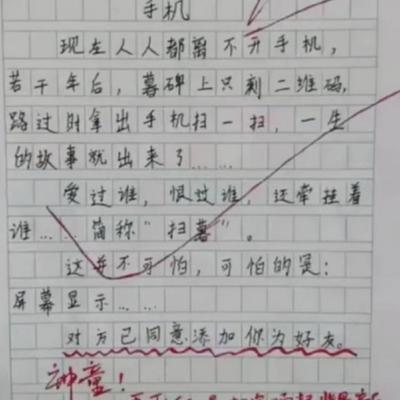 手机
现在人人都离不开手机，
若干年后，墓碑上只刻二维码，
路过时拿出手机扫一扫，一生
的故事就出来了……
爱过谁，恨过谁，还牵挂着
谁……简称“扫墓”。
这并不可怕，可怕的是：
屏幕显示……
对方已同意添加你为好友。
神童！